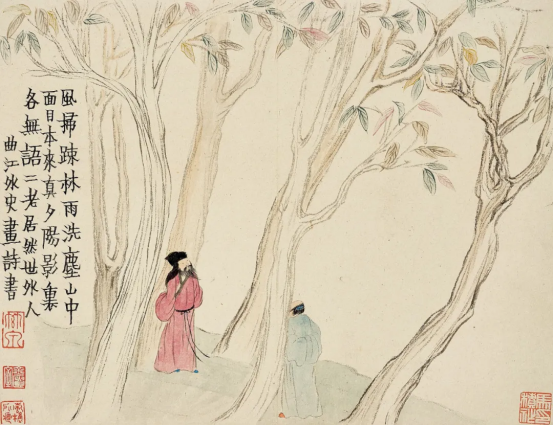 風掃踈林雨洗塵山中
面目本來真夕陽影裏
各無語二老居然世外人
曲江外史畫詩書